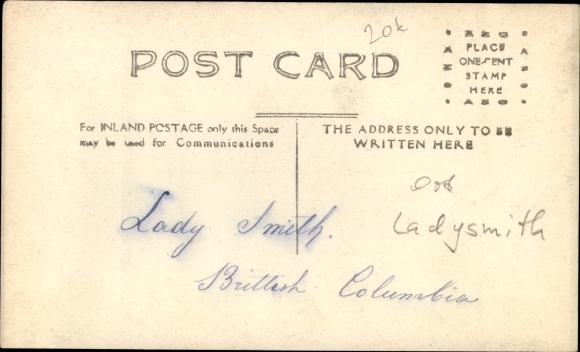 POST CARD
PLACE
ONE-CENT
STAMP
HERE
For INLAND POSTAGE only this Space
may be used for Communications
THE ADDRESS ONLY TO BE
WRITTEN HERE
Ladysmith
Lady Smith.
Brittish Columbia